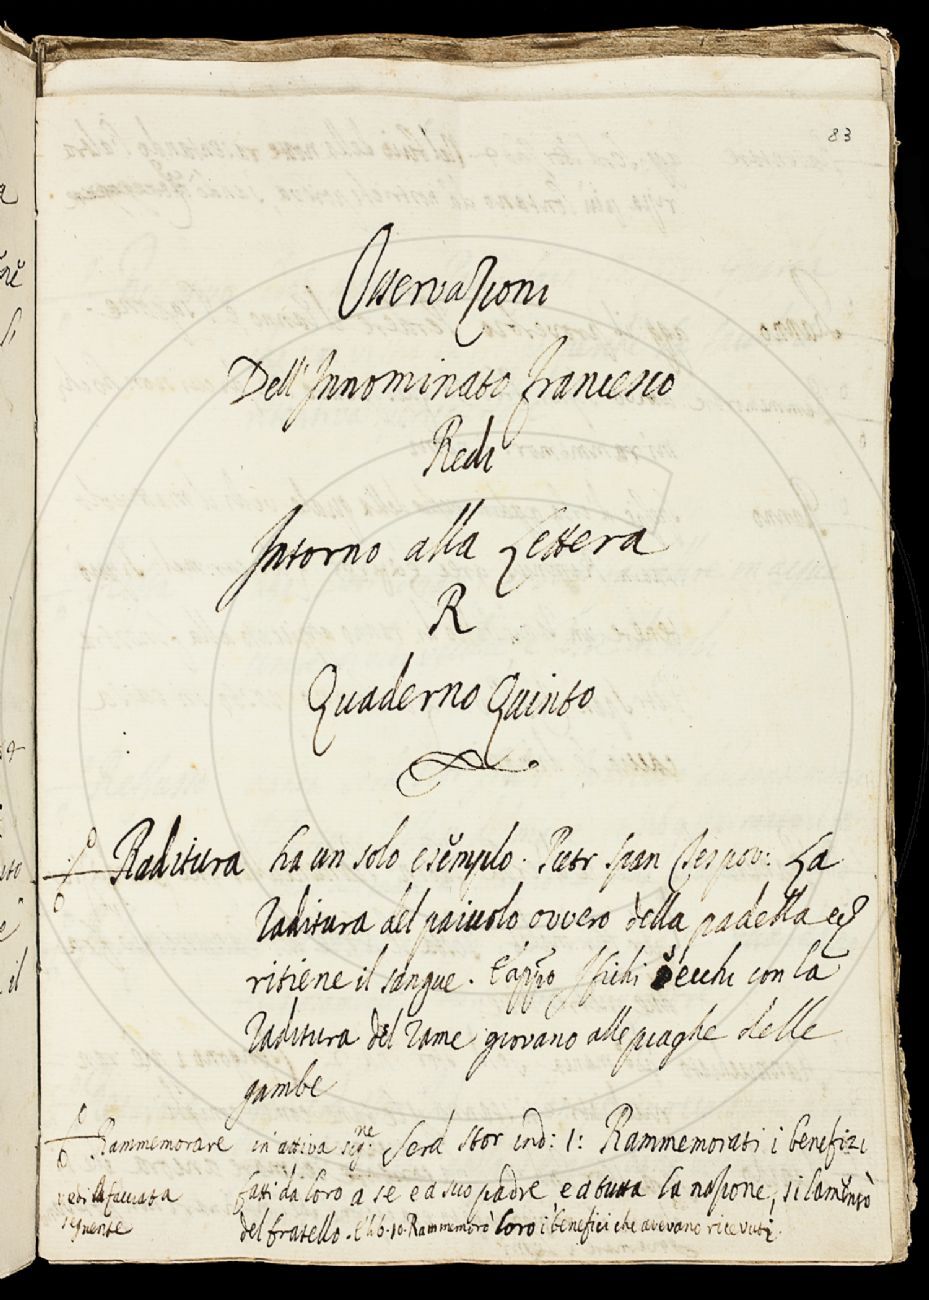 83
Osservazioni
Dell'Innominato Francesco
Redi
Intorno alla Lettera
R
Quaderno Quinto
Raditura ha un solo esẽmplo. Pietr Span La
Raditura del paiuolo ovvero della padella
ritiene il sangue. E appo I fichi secchi con la
Raditura del Rame giovano alle piaghe delle
gambe
Rammemorare in attiva signe. Serd Stor ind: 1: Rammemorati i benefizi
vedi la facciata fatti da loro a se e a suo padre e a tutta la nazione, si lamẽntò
seguente del fratello. E lib. 10. Rammemorò loro i benefici che avevano ricevuti